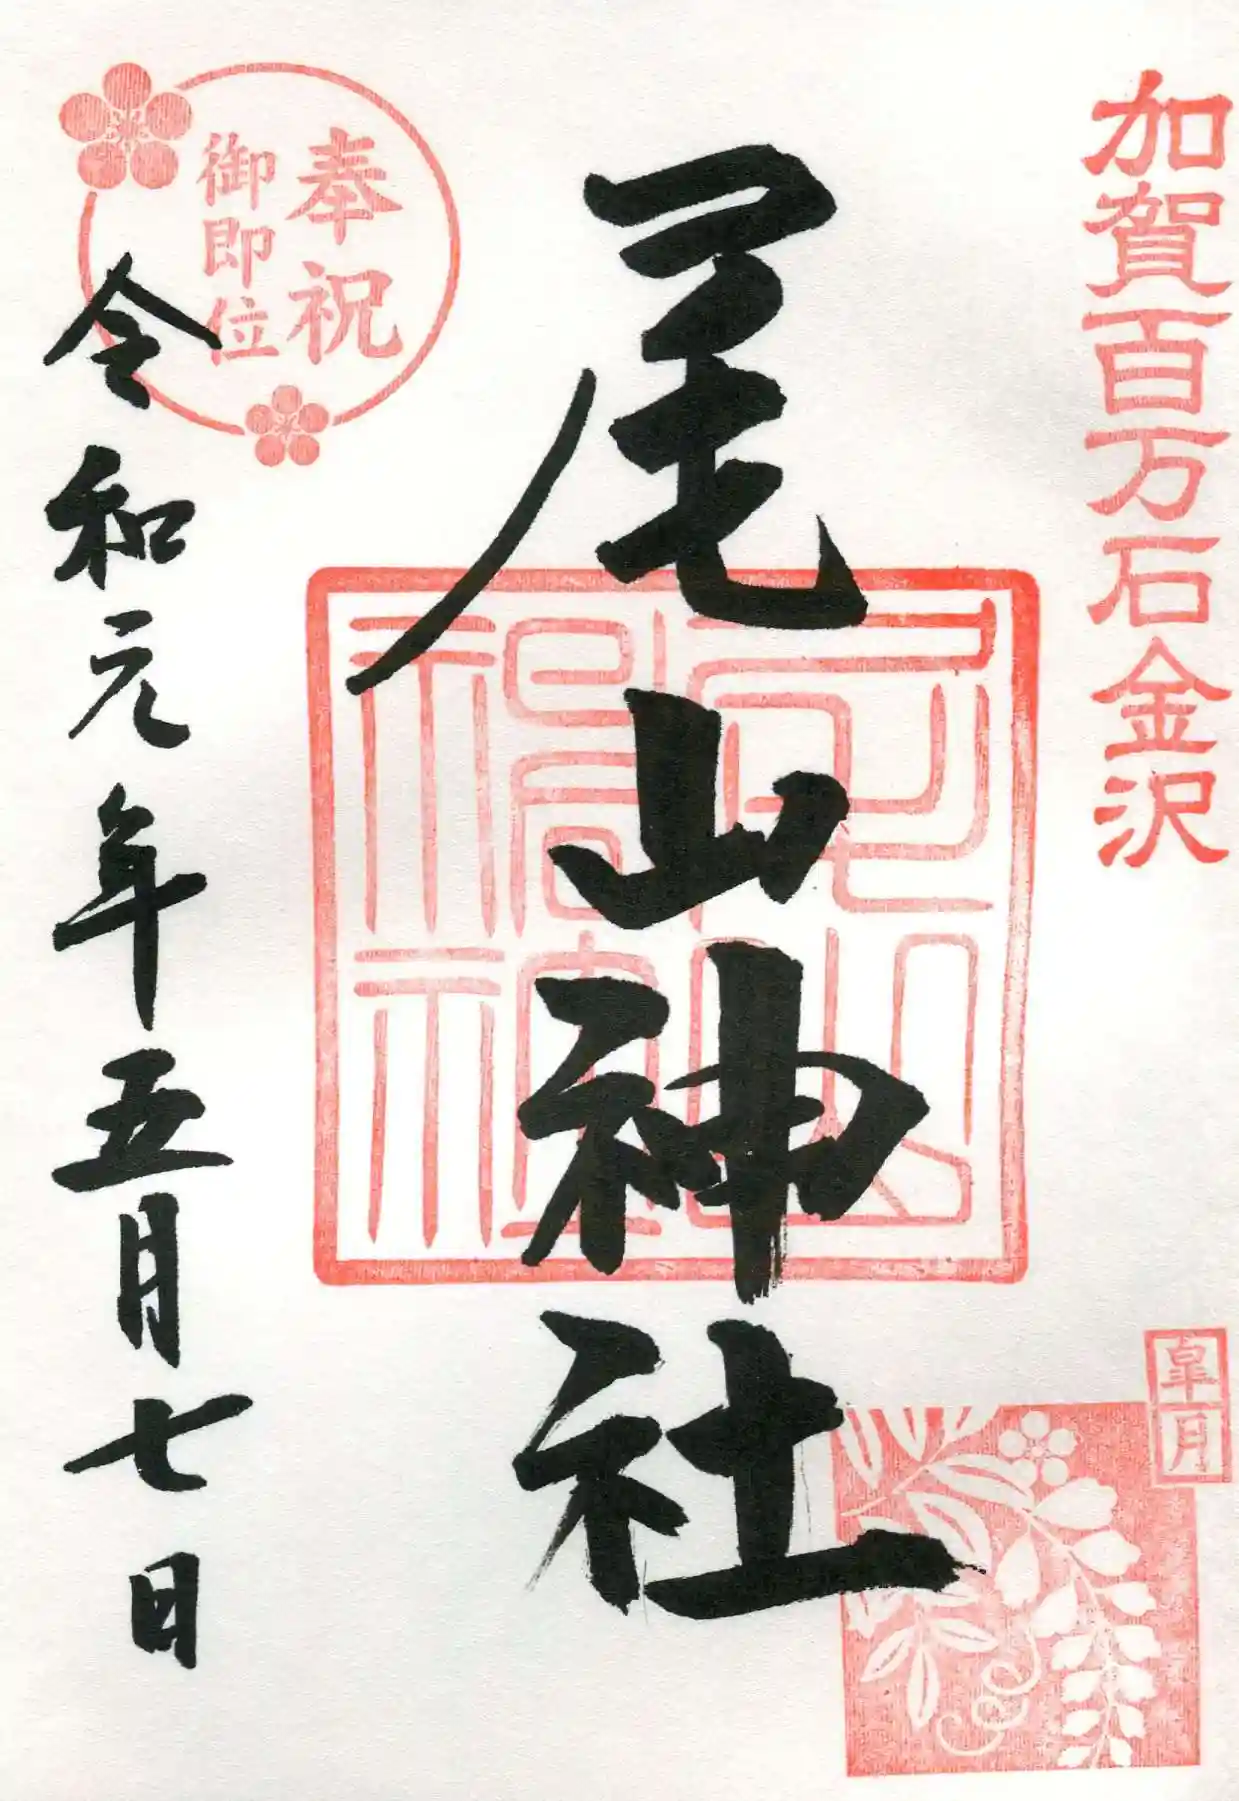 加賀百万石金沢
皐月
尾山神社
奉祝
御即位
令和元年五月七日